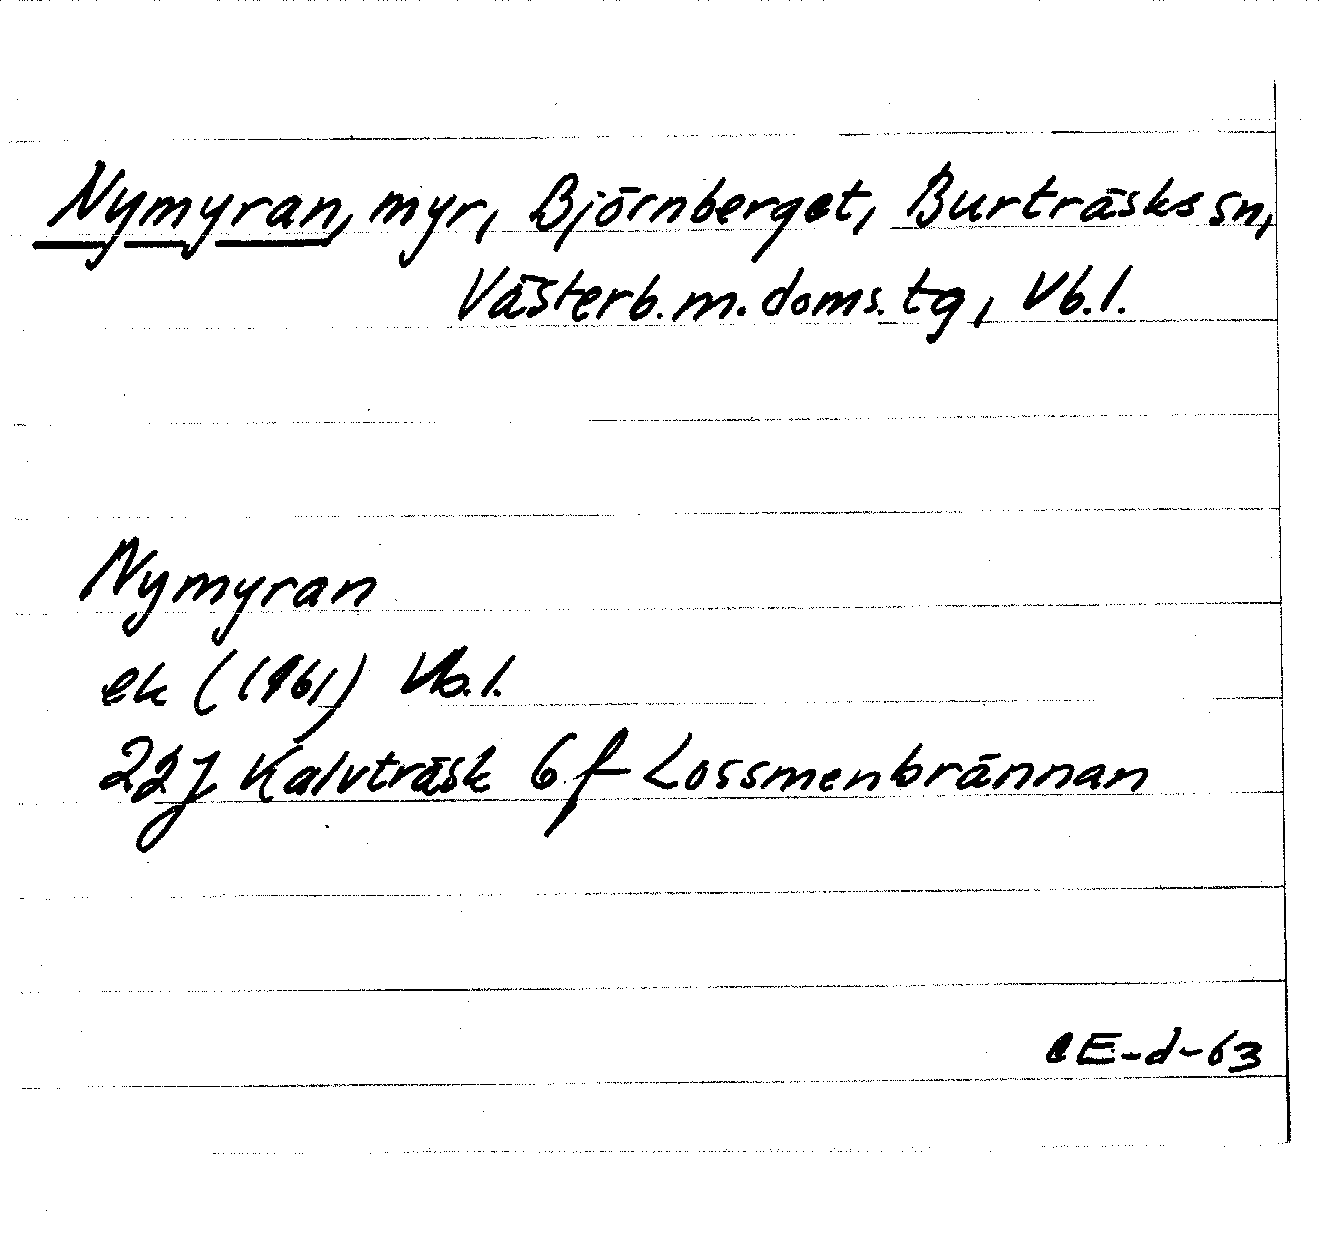 Nymyran, myr, Björnberget, Burträsks sn,
Västerb. m. doms. tg, Vb. l.
Nymyran
ek (1961) Vb. l.
22J Kalvträsk 6 f Lossmenbrännan
CE-d-63